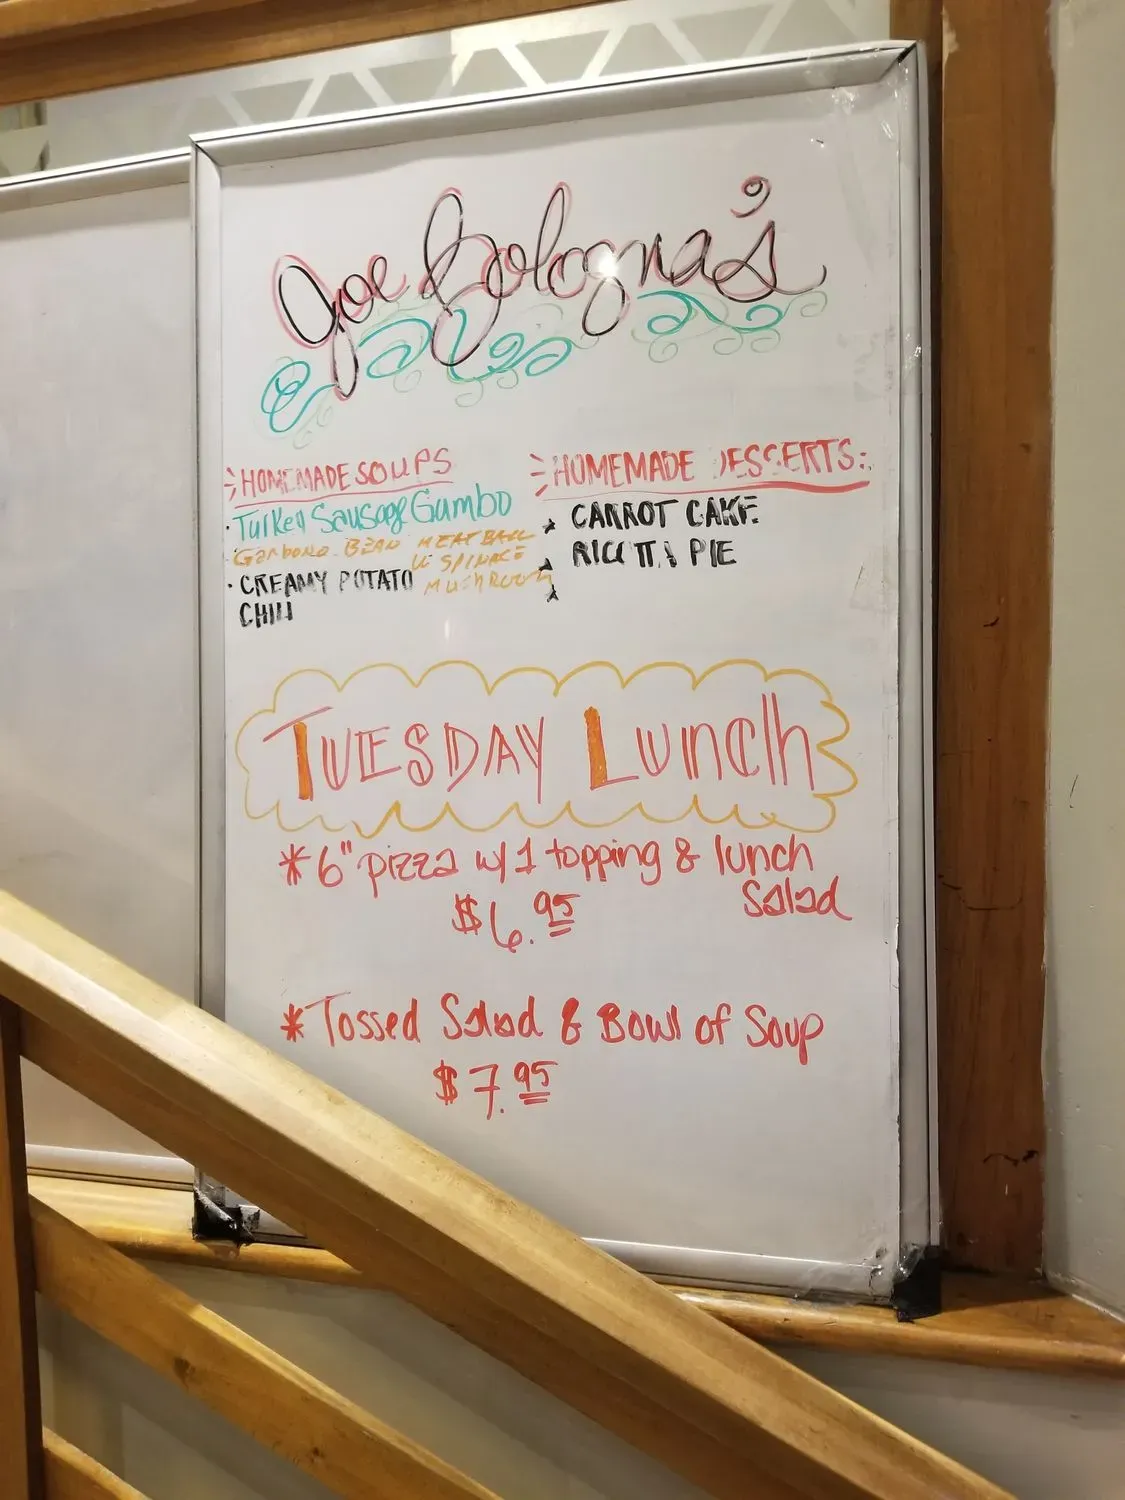 Joe Bologna's
HOMEMADE SOUPS
· Turkey Sausage Gumbo
Garbono BEAN MEATBALL
W SPINACE
· CREAMY POTATO
MUSHROOM
CHILI
HOMEMADE DESSERTS:
CARROT CAKE
RICOTTA PIE
TUESDAY Lunch
* 6" pizza w/ 1 topping & lunch
Salad
$6.95
* Tossed Salad & Bowl of Soup
$7.95